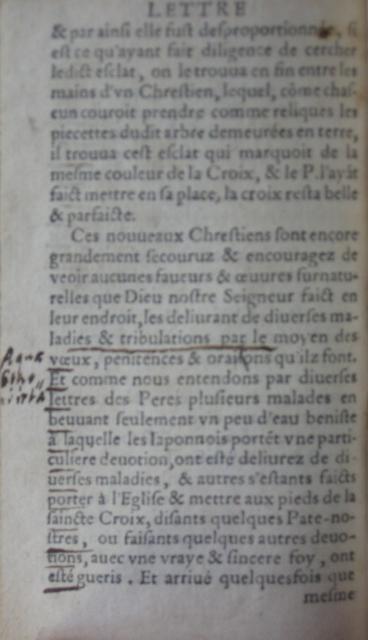 LETTRE
& par ainsi elle fust desproportionnée, si
est ce qu'ayant fait diligence de cercher
ledict esclat, on le trouua en fin entre les
mains d'vn Chrestien, lequel, cõme chas-
cun couroit prendre comme reliques les
piecettes dudit arbre demeurées en terre,
il trouua cest esclat qui marquoit de la
mesme couleur de la Croix, & le P. l'ayãt
faict mettre en sa place, la croix resta belle
& parfaicte.
Ces nouueaux Chrestiens sont encore
grandement secouruz & encouragez de
veoir aucunes faueurs & œuures surnatu-
relles que Dieu nostre Seigneur faict en
leur endroit, les deliurant de diuerses ma-
ladies & tribulations par le moyen des
vœux, penitences & oraisons qu'ilz font.
Et comme nous entendons par diuerses
lettres des Peres plusieurs malades en
beuuant seulement vn peu d'eau beniste
à laquelle les Iaponnois portẽt vne parti-
culiere deuotion, ont esté deliurez de di-
uerses maladies, & autres s'estants faicts
porter à l'Eglise & mettre aux pieds de la
saincte Croix, disants quelques Pate-no-
stres, ou faisants quelques autres deuo-
tions, auec vne vraye & sincere foy, ont
esté gueris. Et arriué quelquesfois que
mesme